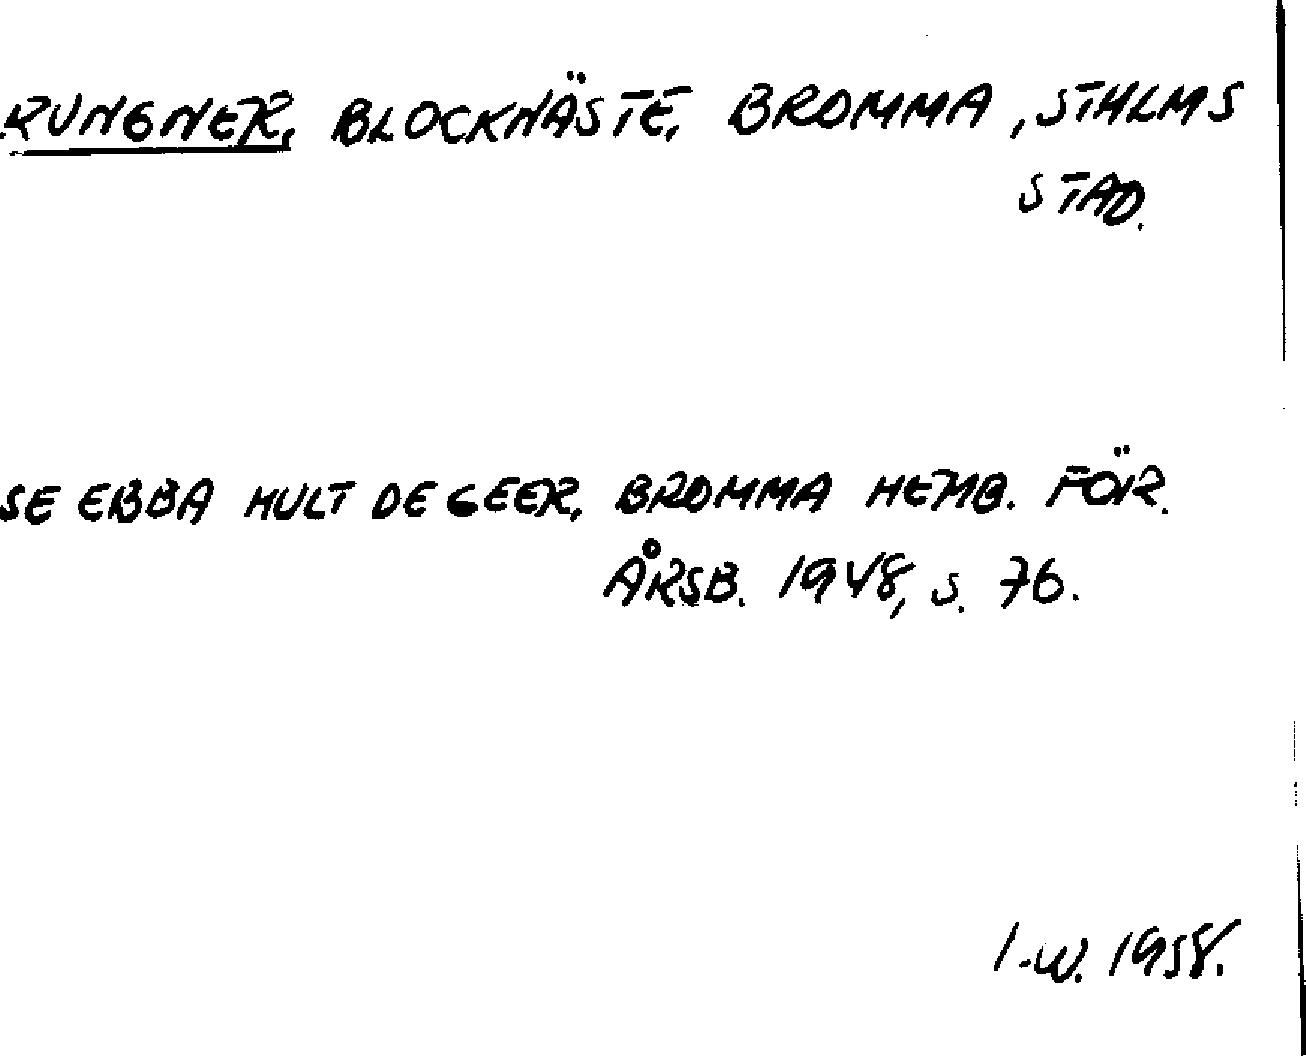 RUNGNER, BLOCKNÄSTE, BROMMA, STHLMS
STAD.
SE EBBA HULT DE GEER, BROMMA HEMB. FÖR.
ÅRSB. 1948, s. 76.
I.W. 1958.